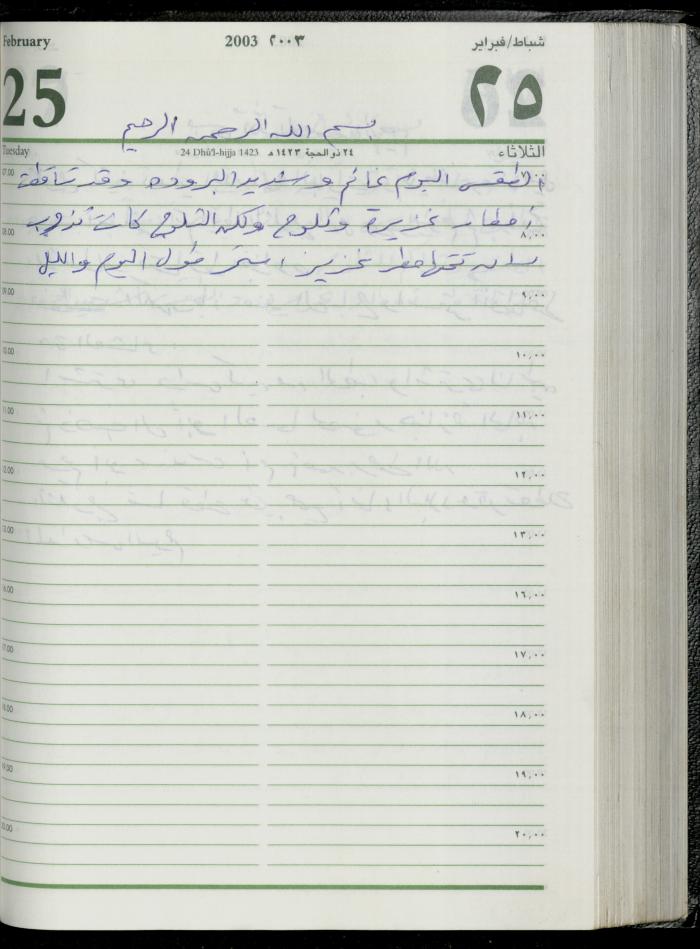 February 2003 ٢٠٠٣ شباط/فبراير
25 ٢٥
بسم الله الرحمن الرحيم
Tuesday 24 Dhū'l-hijja 1423 ٢٤ ذو الحجة ١٤٢٣ هـ الثلاثاء
07.00
الطقس اليوم غائم وشديد البروده وقد تساقطت
أمطار غزيرة وثلوج ولكن الثلوج كانت تذوب
08.00 ٨,٠٠
تحتها مطر غزير استمر طول اليوم والليل
09.00 ٩,٠٠
10.00 ١٠,٠٠
11.00 ١١,٠٠
12.00 ١٢,٠٠
13.00 ١٣,٠٠
16.00 ١٦,٠٠
17.00 ١٧,٠٠
18.00 ١٨,٠٠
19.00 ١٩,٠٠
20.00 ٢٠,٠٠